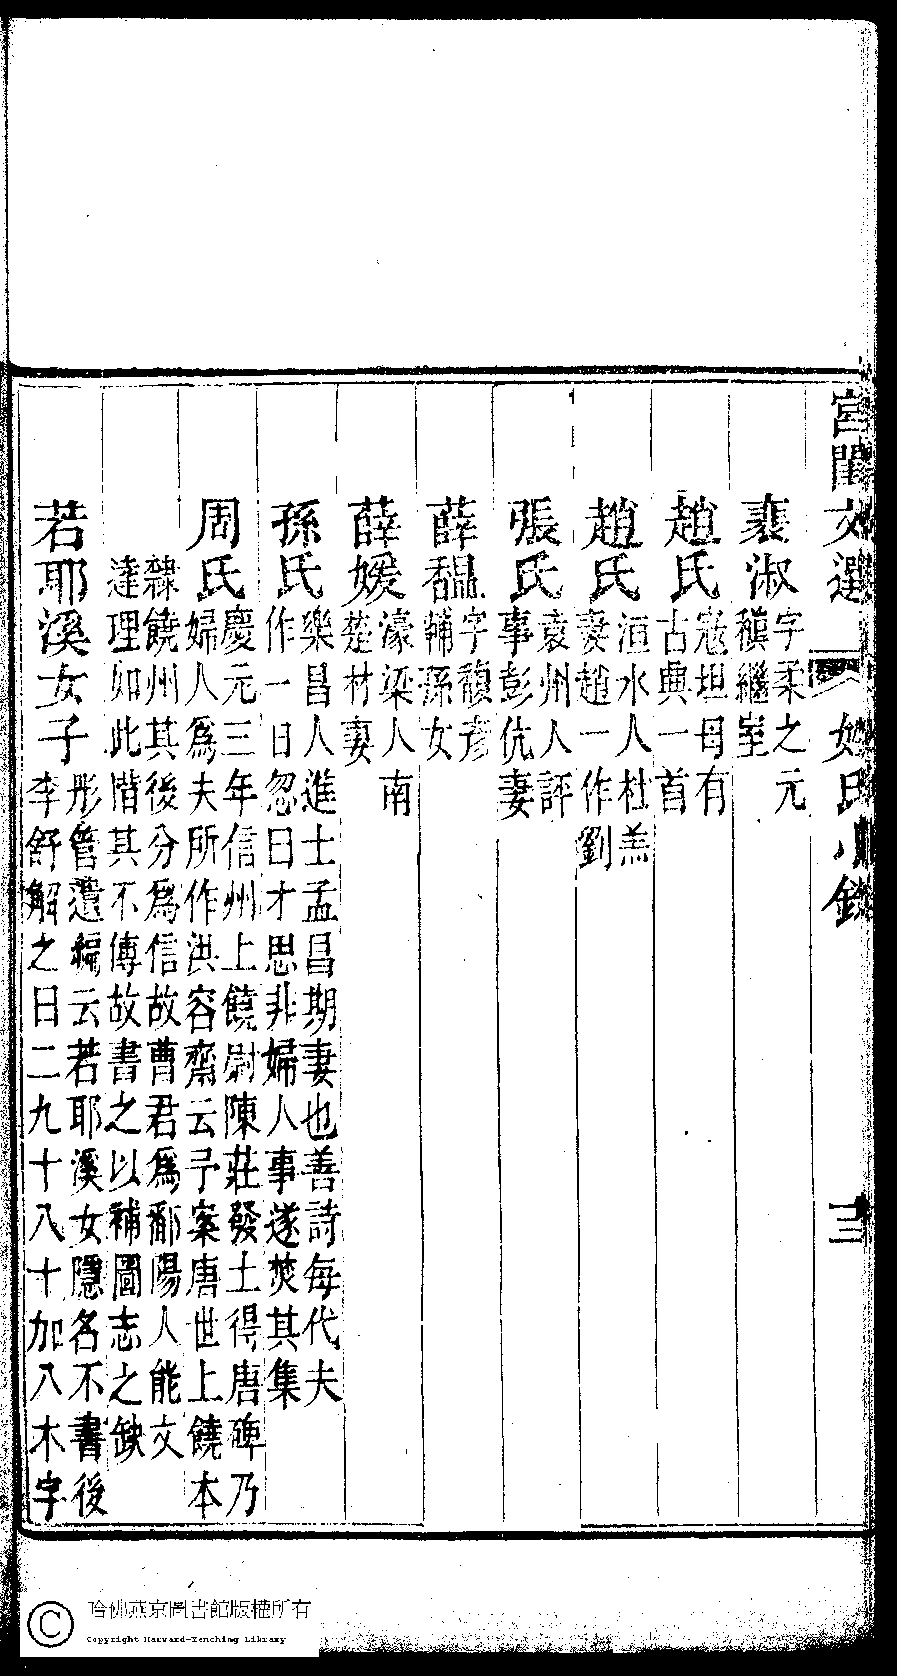 宮閨文選 姓氏小錄 十二
裴淑 字柔之元
稹繼室
趙氏 寇坦母有
古興一首
趙氏 洹水人杜羔
妻趙一作劉
張氏 袁州人評
事彭伉妻
薛馧 字馥彥
輔孫女
薛媛 濠梁人南
楚材妻
孫氏 樂昌人進士孟昌期妻也善詩每代夫
作一日忽曰才思非婦人事遂焚其集
周氏 慶元三年信州上饒尉陳莊發土得唐碑乃
婦人爲夫所作洪容齋云予案唐世上饒本
隸饒州其後分爲信故曹君爲鄱陽人能文
達理如此惜其不傳故書之以補圖志之缺
若耶溪女子 彤管遺編云若耶溪女隱名不書後
李舒解之曰二九十八十加八木字
哈佛燕京圖書館版權所有
Copyright Harvard-Yenching Library